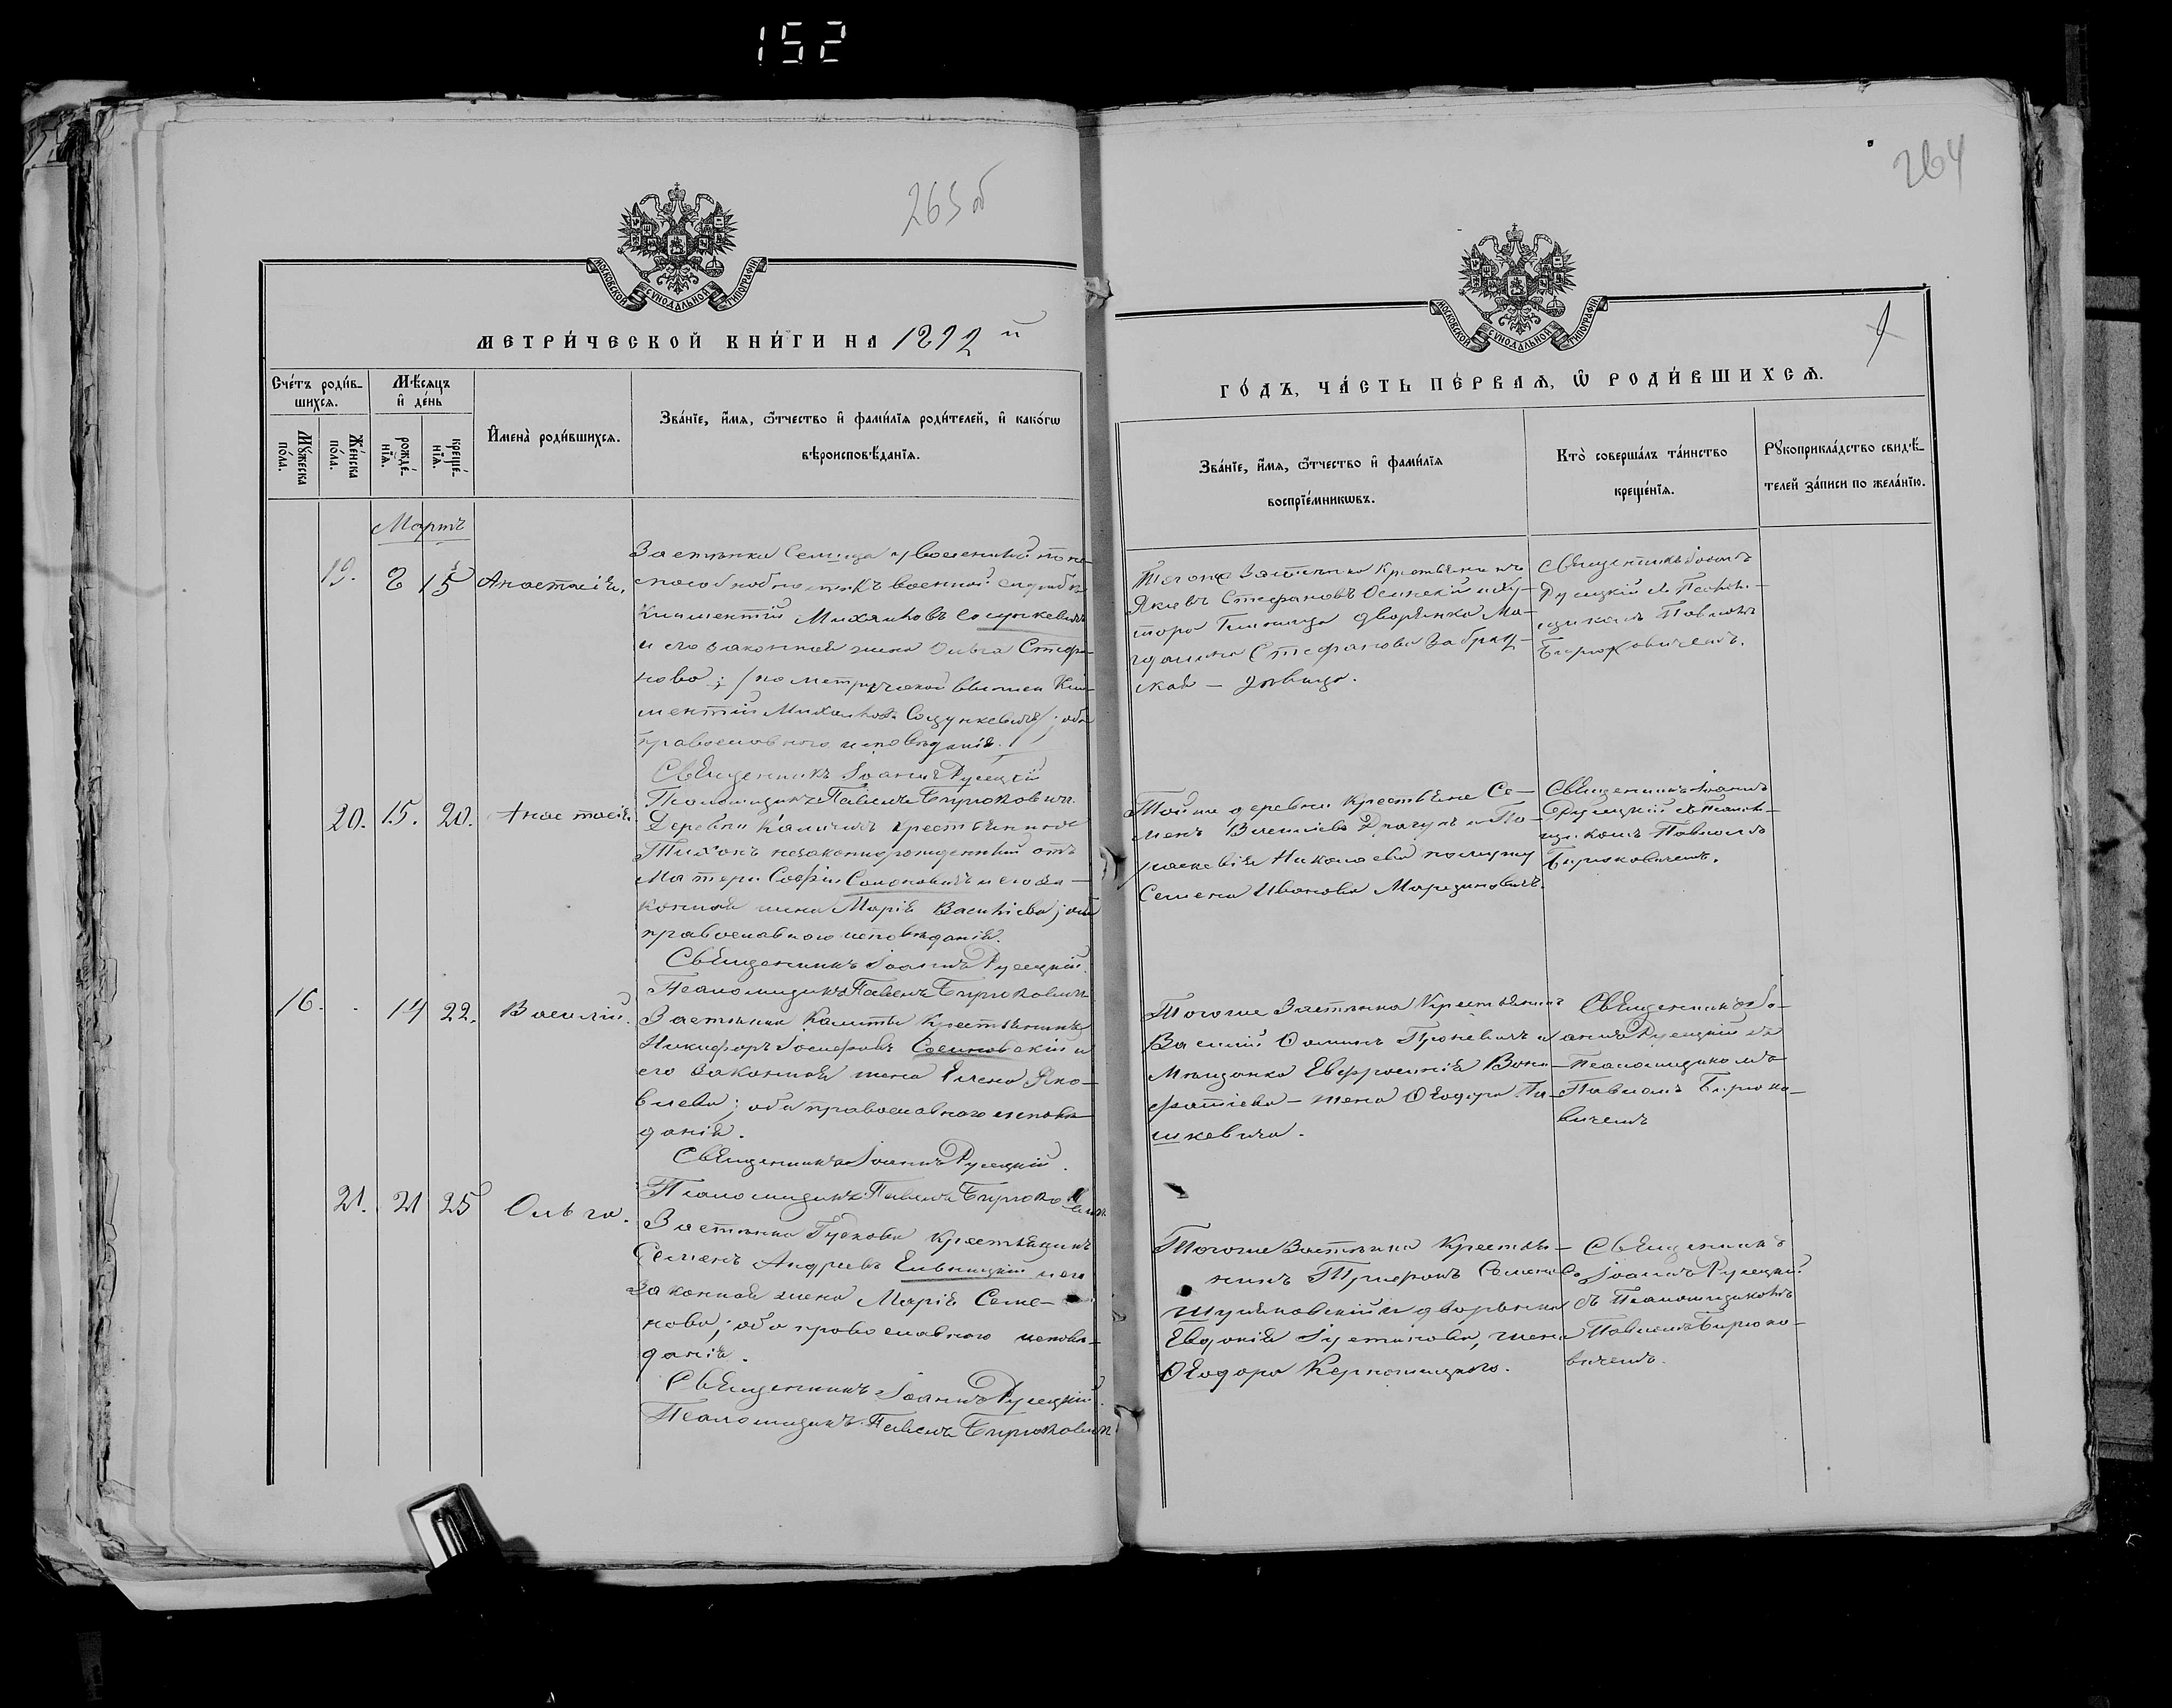 152
263 об
264
МОСКОВСКОЙ СѴНОДАЛЬНОЙ ТИПОГРАФІИ
МЕТРИ́ЧЕСКОЙ КНИ́ГИ НА 1892 й
Сче́тъ роди́в-
шихсѧ.
Мѣ́сѧцъ
и҆ де́нь
Мꙋ́жеска
по́ла.
Же́нска
по́ла.
рожде́-
нїѧ.
креще́-
нїѧ.
И҆мена̀ роди́вшихсѧ.
Зва́нїе, и҆́мѧ, ѻ҆́тчество и҆ фами́лїѧ роди́телей, и҆ како́гѡ
вѣроисповѣ́данїѧ.
Мартъ
19. 8 15 Анастасія.
Застѣнка уволенный по не-
способности къ военной службѣ
Климентій Михаиловъ
и его законная жена Ольга Стефа-
нова; /по метрической выписи Кли-
ментій Михаиловъ Соцункевичъ/; оба
православнаго исповѣданія.
Священникъ Іоаннъ Русецкій
Псаломщикъ Павелъ Бирюковичъ
20. 15. 20. Анастасія
Деревни крестьянинъ
Тихонъ незаконнорожденный отъ
матери Софіи и его за-
конная жена Марія Васильева; оба
православнаго исповѣданія.
Священникъ Іоаннъ Русецкій.
Псаломщикъ Павелъ Бирюковичъ
16. 14 22. Василій.
Застѣнка Калиты крестьянинъ
Никифоръ Іосифовъ Сосиновскій и
его законная жена Елена Яко-
влева; оба православнаго исповѣ-
данія.
Священникъ Іоаннъ Русецкій.
Псаломщикъ Павелъ Бирюковичъ
21. 21 25 Ольга.
Застѣнка Гуркова крестьянинъ
Семенъ Андреевъ Ельницкій и его
законная жена Марія Семе-
нова; оба православнаго исповѣ-
данія.
Священникъ Іоаннъ Русецкій.
Псаломщикъ Павелъ Бирюковичъ
МОСКОВСКОЙ СѴНОДАЛЬНОЙ ТИПОГРАФІИ
ГО́ДЪ, ЧА́СТЬ ПЕ́РВАѦ, Ѡ҆ РОДИ́ВШИХСѦ.
Зва́нїе, и҆́мѧ, ѻ҆́тчество и҆ фами́лїѧ
воспрїе́мникѡвъ.
Кто̀ соверша́лъ та́инство
креще́нїѧ.
Рꙋкоприкла́дство свидѣ́-
телей за́писи по жела́нїю.
Тогоже Застѣнка крестьянинъ
Яковъ Стефановъ и ху-
тора дворянка Ма-
гдалина Стефанова Забрец-
кая — дѣвица.
Священникъ Іоаннъ
Русецкій съ Псалом-
щикомъ Павломъ
Бирюковичемъ.
Той же деревни крестьяне Се-
менъ Васильевъ Драгунъ и Па-
раскевія Николаева по мужу
Семена Иванова
Священникъ Іоаннъ
Русецкій съ Псалом-
щикомъ Павломъ
Бирюковичемъ.
Тогоже Застѣнка Крестьянинъ
Василій Ѳоминъ и
мѣщанка Евфросинія Вони-
фатіева — жена Ѳеодора Па-
шкевича.
Священникъ Іо-
аннъ Русецкій съ
Псаломщикомъ
Павломъ Бирюко-
вичемъ
Тогоже Застѣнка Крестья-
нинъ Трифонъ Семеновъ
и дворянка
Евдокія Іустинова, жена
Ѳеодора
Священникъ
Іоаннъ Русецкій
съ Псаломщикомъ
Павломъ Бирюко-
вичемъ.